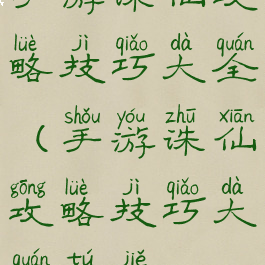 手游诛仙攻
lüè jì qiǎo dà quán
略技巧大全
shǒu yóu zhū xiān
(手游诛仙
gōng lüè jì qiǎo dà
攻略技巧大
quán tú jiě